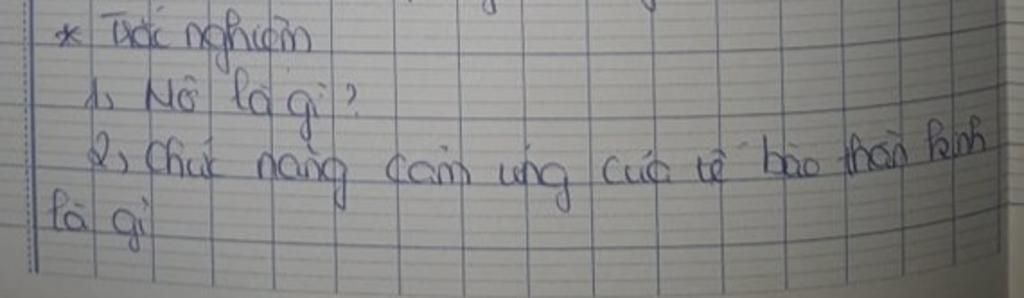 * Trắc nghiệm
1, Nơ là gì?
2, Chức năng cảm ứng của tế bào thần kinh
là gì